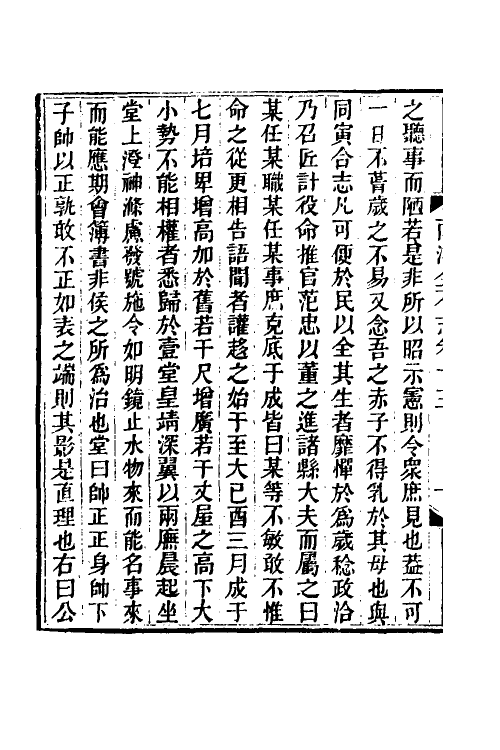 之聽事而陋若是非所以昭示憲則令衆庶見也葢不可
一日不嘗歲之不易又念吾之赤子不得乳於其母也與
同寅合志凡可便於民以全其生者靡憚於爲歲稔政洽
乃召匠計役命推官范忠以董之進諸縣大夫而屬之曰
某任某職某任某事庶克底于成皆曰某等不敏敢不惟
命之從更相告語聞者讙趍之始于至大已酉三月成于
七月培卑增高加於舊若干尺增廣若干丈屋之高下大
小勢不能相權者悉歸於壹堂皇靖深翼以兩廡晨起坐
堂上澄神滌慮發號施令如明鏡止水物來而能名事來
而能應期會簿書非侯之所爲治也堂曰帥正正身帥下
子帥以正孰敢不正如表之端則其影是直理也右曰公